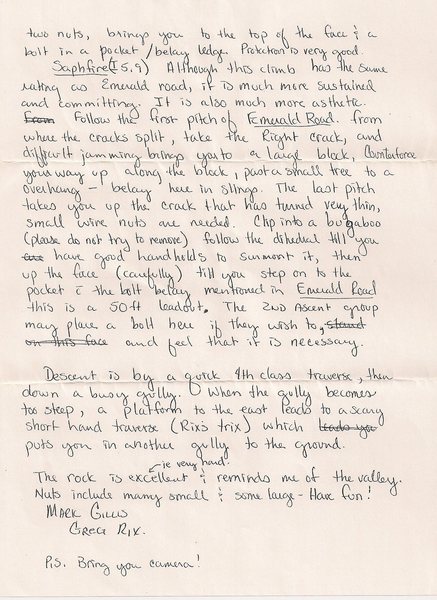 two nuts, brings you to the top of the face & a
bolt in a pocket/belay ledge. Protection is very good.
Saphfire (I 5.9) Although this climb has the same
rating as Emerald road, it is much more sustained
and committing. It is also much more asthetic.
From Follow the first pitch of Emerald Road. from
where the cracks split, take the Right crack, and
difficult jamming brings you to a large block, Counterforce
your way up along the block, past a small tree to a
overhang - belay here in slings. The last pitch
takes you up the crack that has turned very thin,
small wire nuts are needed. Clip into a bugaboo
(please do not try to remove) follow the dihedial till you
are have good handholds to surmont it, then
up the face (carefully) till you step on to the
pocket c̄ the bolt belay mentioned in Emerald Road
this is a 50ft leadout. The 2ND Ascent group
may place a bolt here if they wish to, stand
on this face and feel that it is necessary.
Descent is by a quick 4th class traverse, then
down a busy gully. When the gully becomes
too steep, a platform to the east leads to a scary
short hand traverse (Rix's trix) which leads you
puts you in another gully to the ground.
ie very hard.
The rock is excellent & reminds me of the valley.
Nuts include many small & some large - Have fun!
MARK GILLIS
GREG RIX.
P.S. Bring you camera!